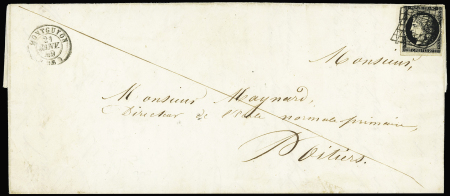 MONTGUYON
21
JANV.
49
Monsieur,
Monsieur Maynard,
Directeur de l'école normale primaire,
Poitiers.